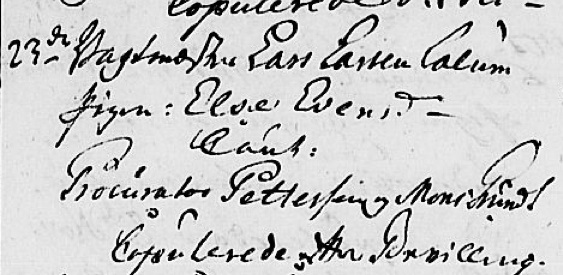 Copulerede
23de Vagtmester Lars Larsen Calum
pigen: Else Evensd.
Caut:
Procurator Pettersen og Mons Trundt
Copulerede efter Bevilling.